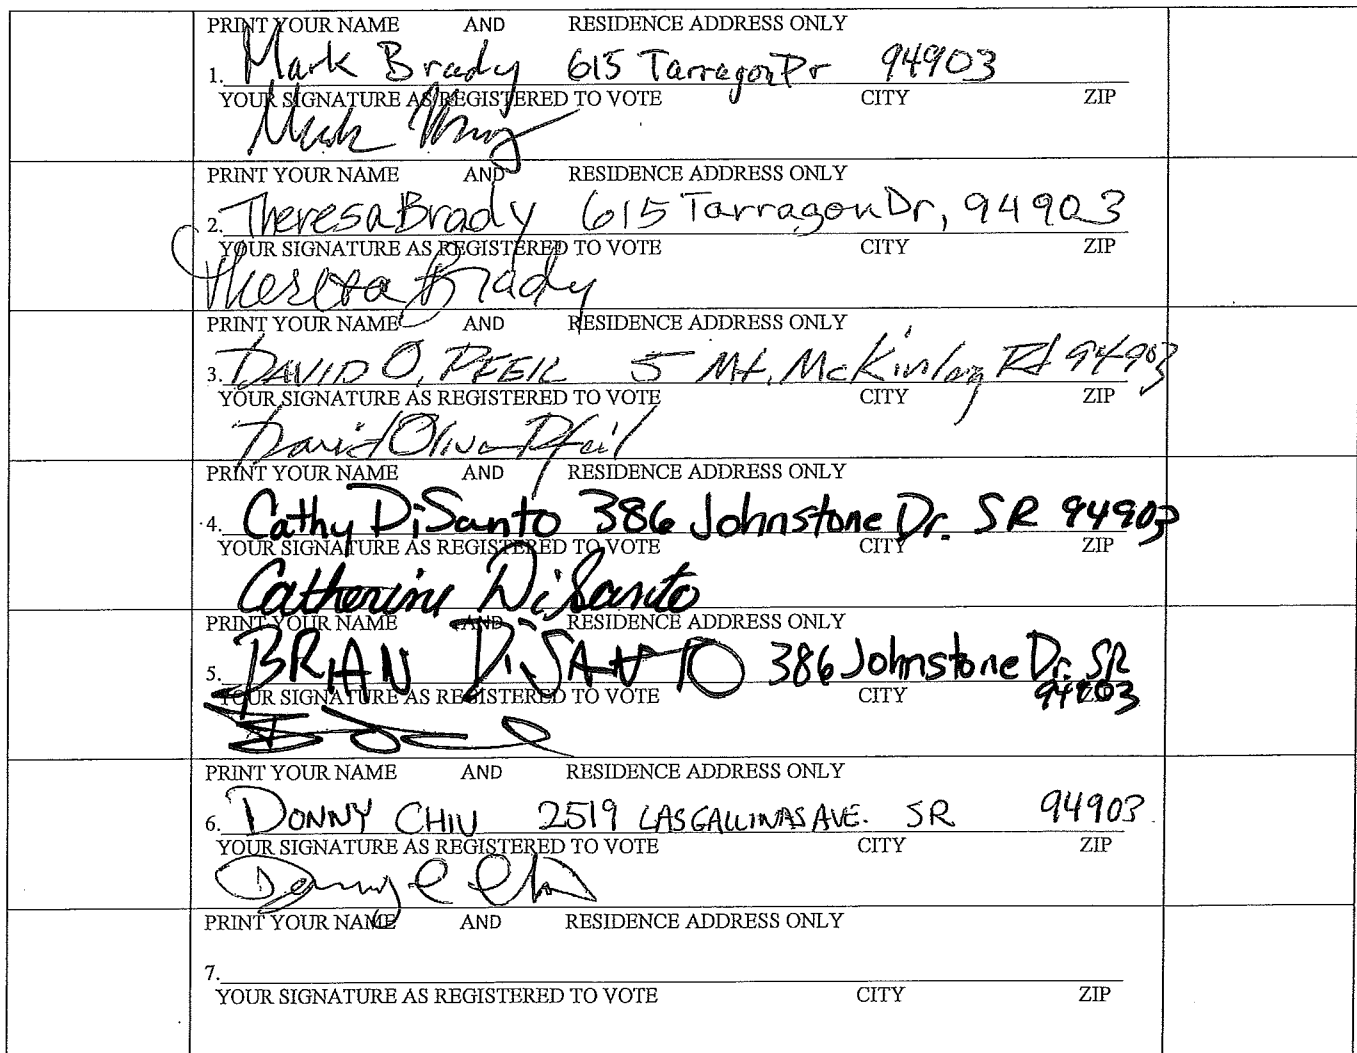 PRINT YOUR NAME AND RESIDENCE ADDRESS ONLY
1. Mark Brady 615 Tarragon Dr 94903
YOUR SIGNATURE AS REGISTERED TO VOTE CITY ZIP
Mark
PRINT YOUR NAME AND RESIDENCE ADDRESS ONLY
2. Theresa Brady 615 Tarragon Dr, 94903
YOUR SIGNATURE AS REGISTERED TO VOTE CITY ZIP
Theresa Brady
PRINT YOUR NAME AND RESIDENCE ADDRESS ONLY
3. DAVID O. PFEIL 5 Mt. McKinley Rd 94903
YOUR SIGNATURE AS REGISTERED TO VOTE CITY ZIP
David Oliver Pfeil
PRINT YOUR NAME AND RESIDENCE ADDRESS ONLY
4. Cathy DiSanto 386 Johnstone Dr. SR 94903
YOUR SIGNATURE AS REGISTERED TO VOTE CITY ZIP
Catherine DiSanto
PRINT YOUR NAME AND RESIDENCE ADDRESS ONLY
5. BRIAN DiSANTO 386 Johnstone Dr. SR
94903
YOUR SIGNATURE AS REGISTERED TO VOTE CITY
PRINT YOUR NAME AND RESIDENCE ADDRESS ONLY
6. DONNY CHIU 2519 LAS GALLINAS AVE. SR 94903
YOUR SIGNATURE AS REGISTERED TO VOTE CITY ZIP
PRINT YOUR NAME AND RESIDENCE ADDRESS ONLY
7.
YOUR SIGNATURE AS REGISTERED TO VOTE CITY ZIP